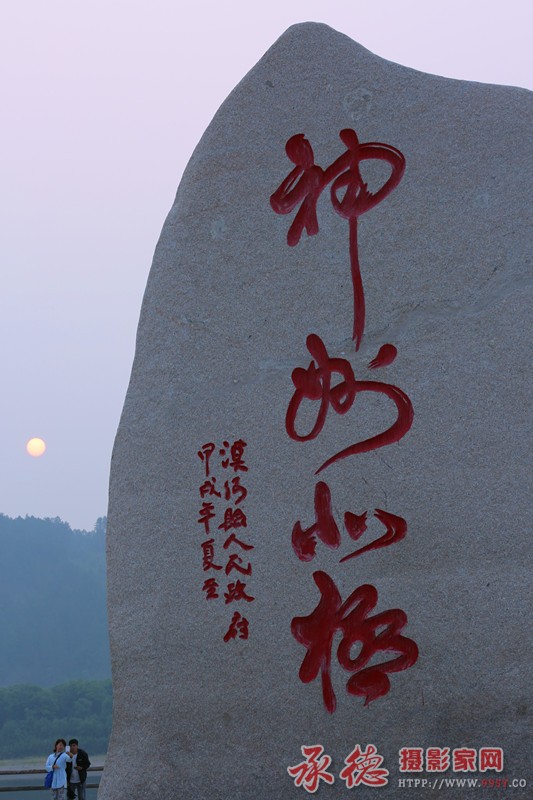 神州北极
漠河县人民政府
甲戌年夏至
承德 摄影家网
HTTP://WWW.
.CO